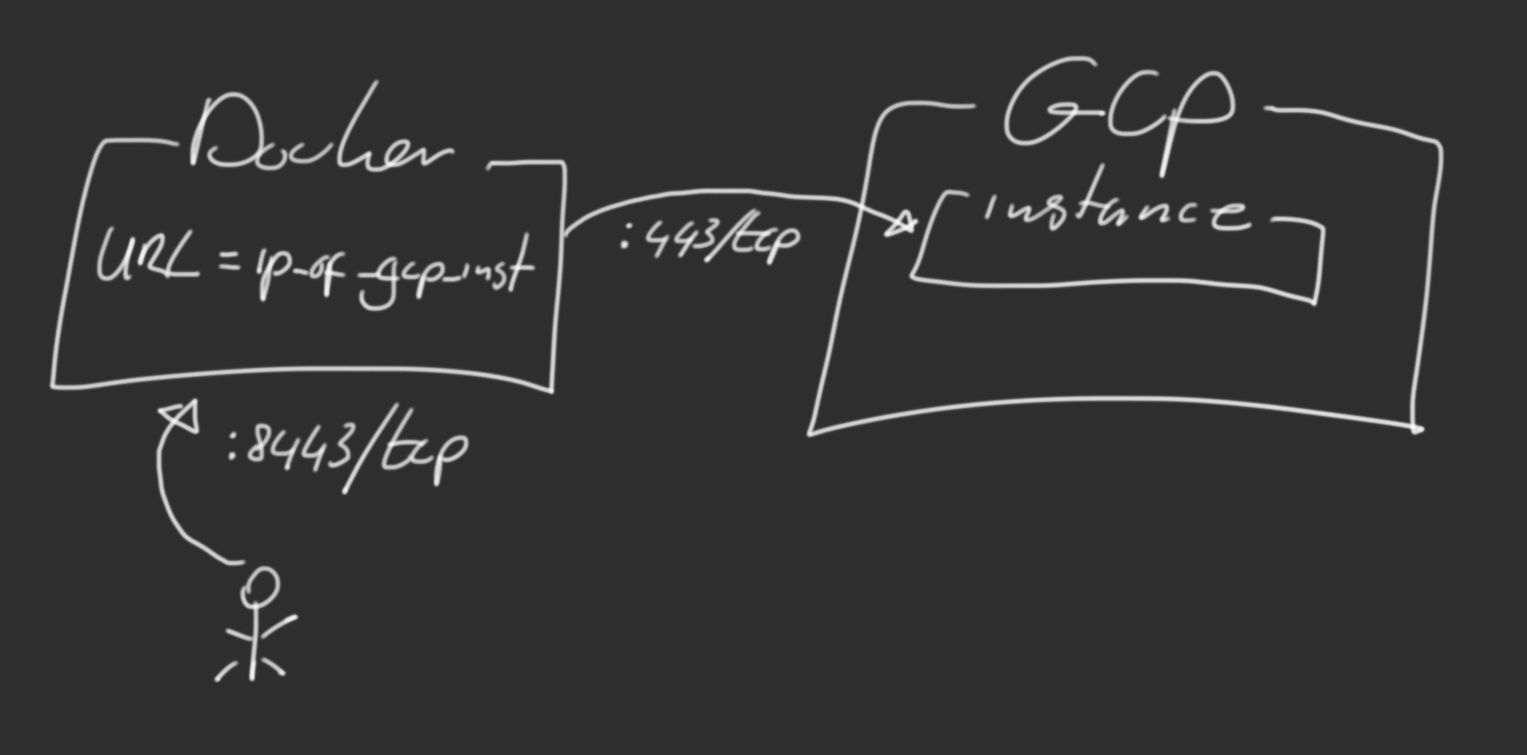 Docker
URL = ip_of_gcp_inst
:443/tcp
GCP
instance
:8443/tcp